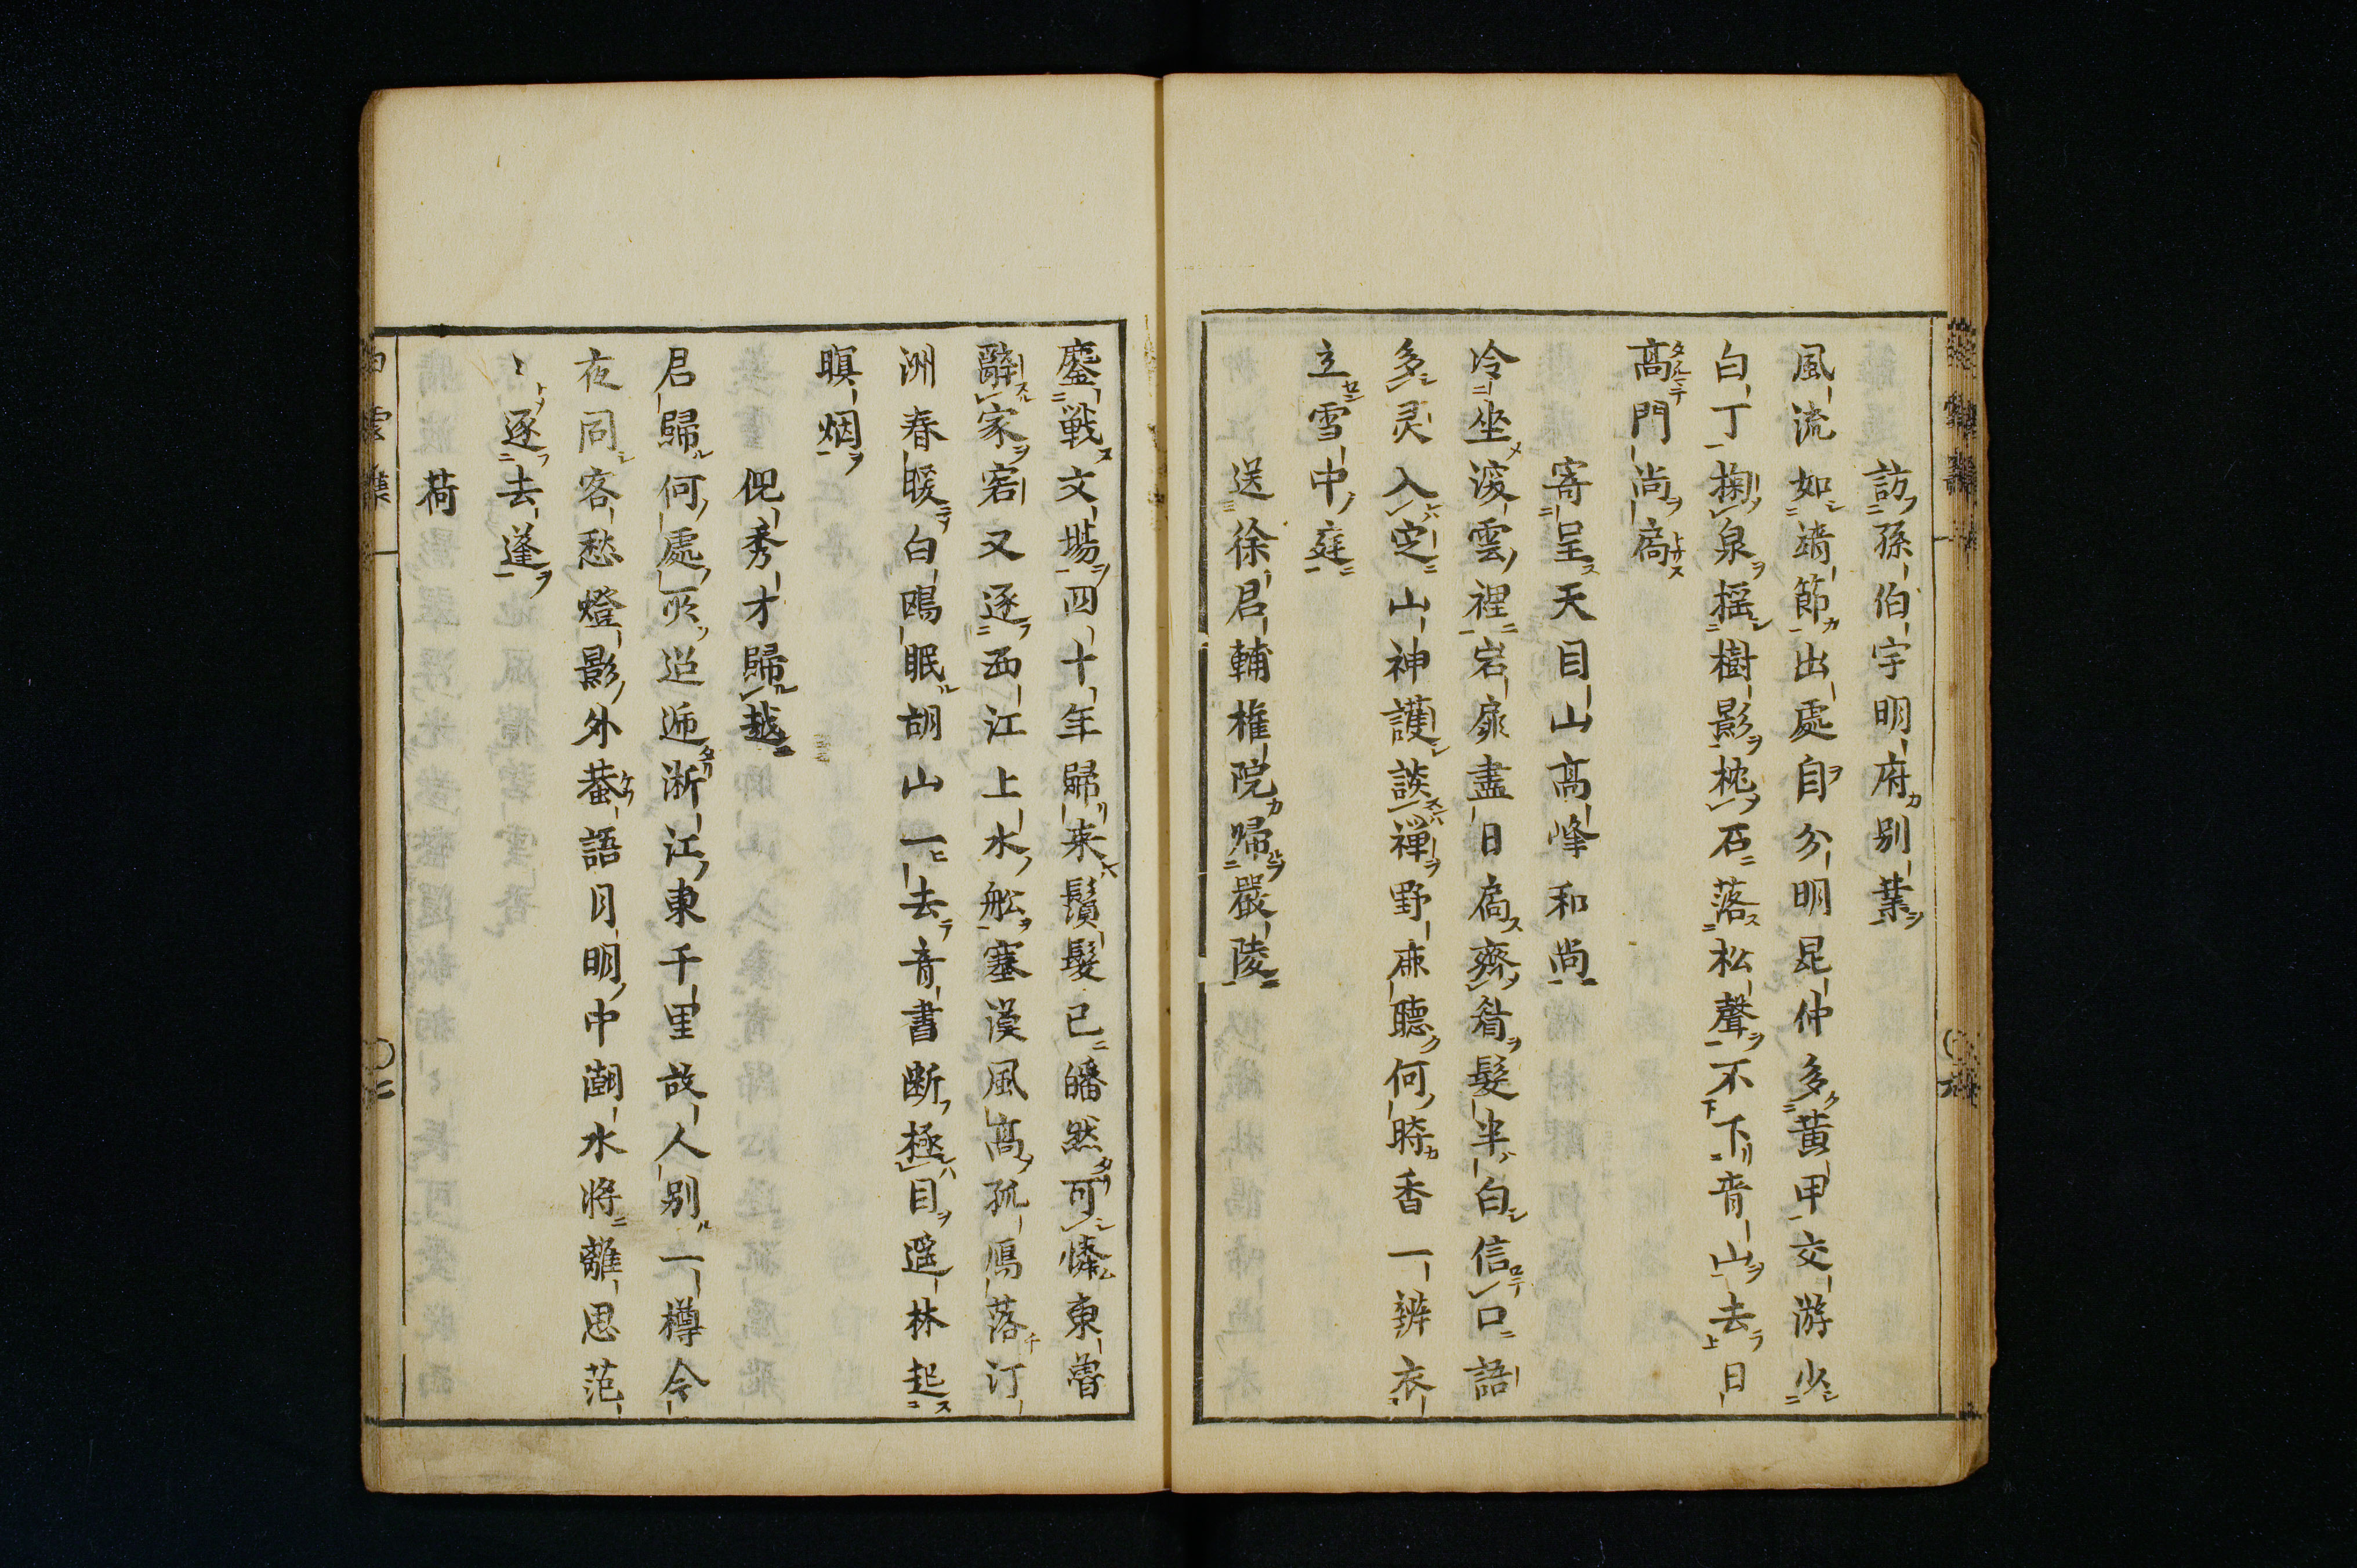 訪孫伯宇明府別業
風流如靖節出處自分明昆仲多黄甲交游少
白丁掬泉揺樹影枕石落松聲不下音山去日
高門尚扄
寄呈天目山高峰和尚
冷坐深雲裡岩扉盡日扄齊眉髮半白信口語
多灵入定山神護談禅野鹿聴何時香一辨衣
立雪中庭
送徐君輔椎院帰嚴陵
鏖戦文場四十年歸来鬚髮已皤然可憐東魯
辭家宕又逐西江上水舩塞漠風高孤鴈落汀
洲春暖白鴎眠胡山一去音書断極目遥林起
暝烟
倪秀才歸越
君歸何處所迢遞淅江東千里故人別一樽今
夜同客愁燈影外蛩語月明中潮水將離思范
〻逐去蓬
荷
白雲集
〇二